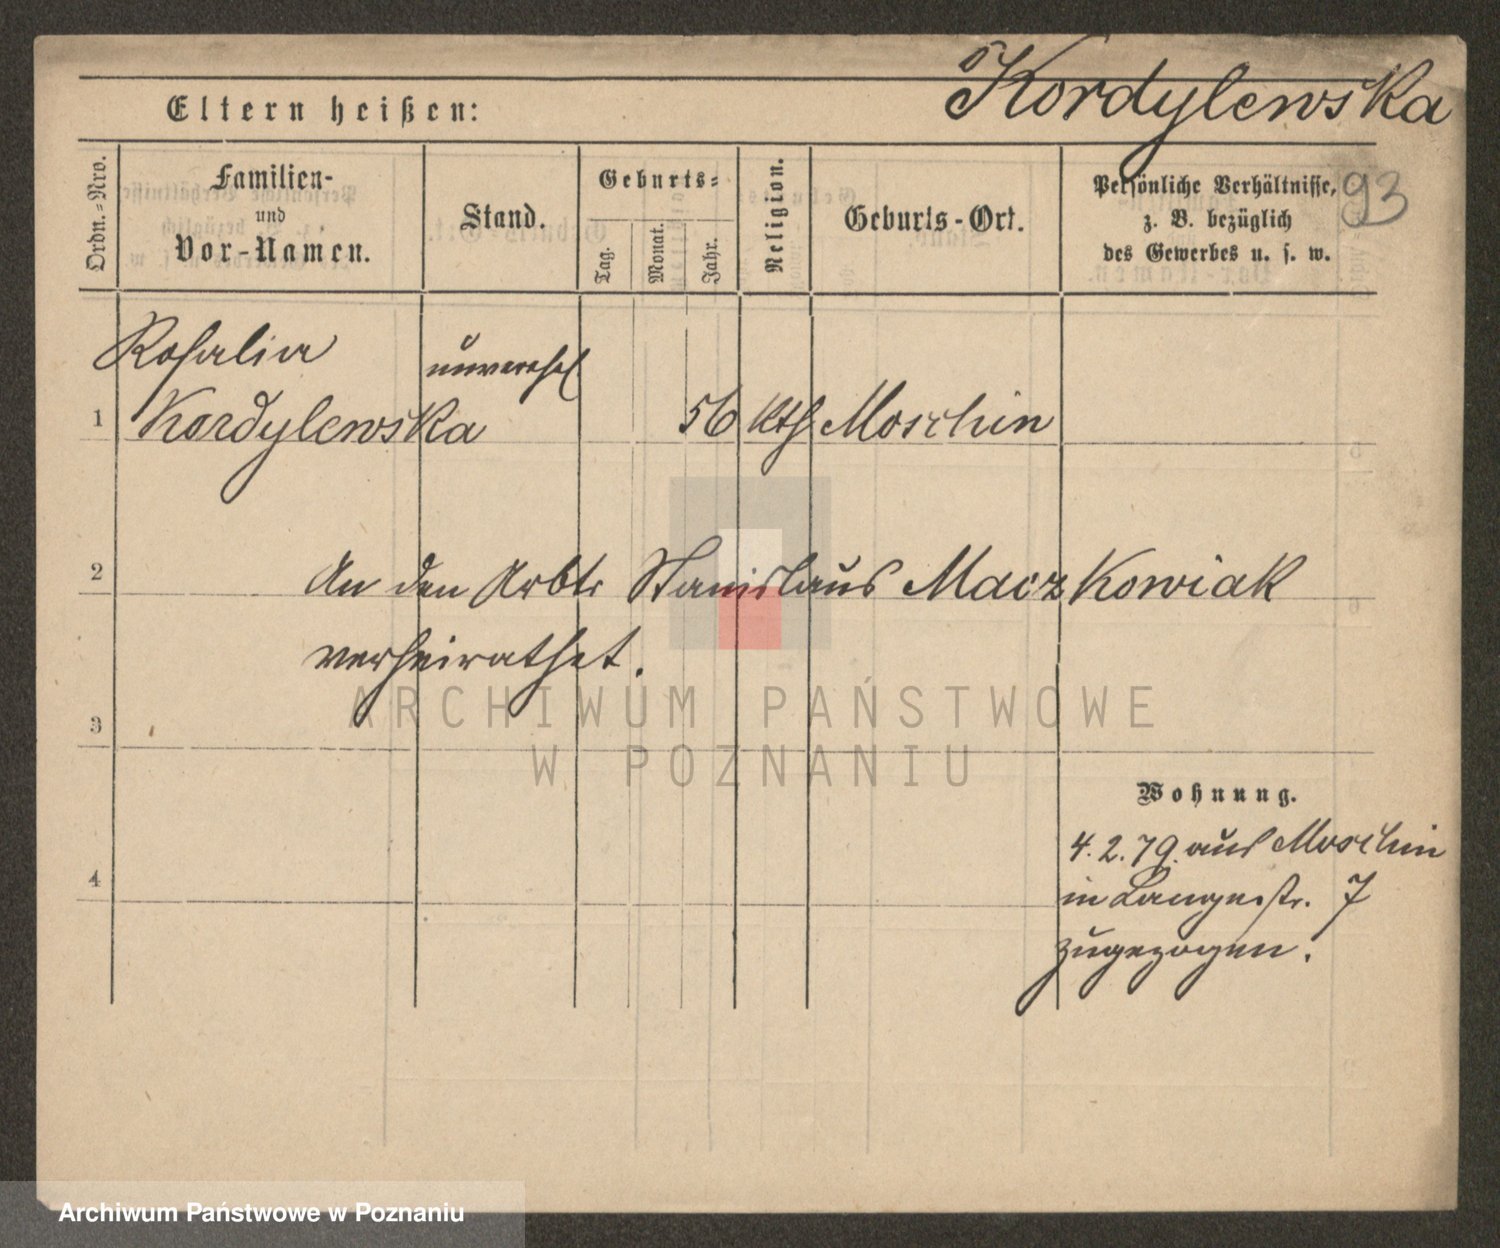 Kordylewska
Eltern heißen:
93
Ordn.-Nro.
Familien-
und
Vor-Namen.
Stand.
Geburts-
Tag.
Monat.
Jahr.
Religion.
Geburts-Ort.
Persönliche Verhältnisse,
z. B. bezüglich
des Gewerbes u. s. w.
Rosalia
unverehel
1 Kordylewska 56 kth Moschin
2 An den Arbtr Stanislaus Maczkowiak
verheirathet.
ARCHIWUM PAŃSTWOWE
3
W POZNANIU
Wohnung.
4. 2. 79. aus Moschin
4 in Langestr. 7
zugezogen.
Archiwum Państwowe w Poznaniu